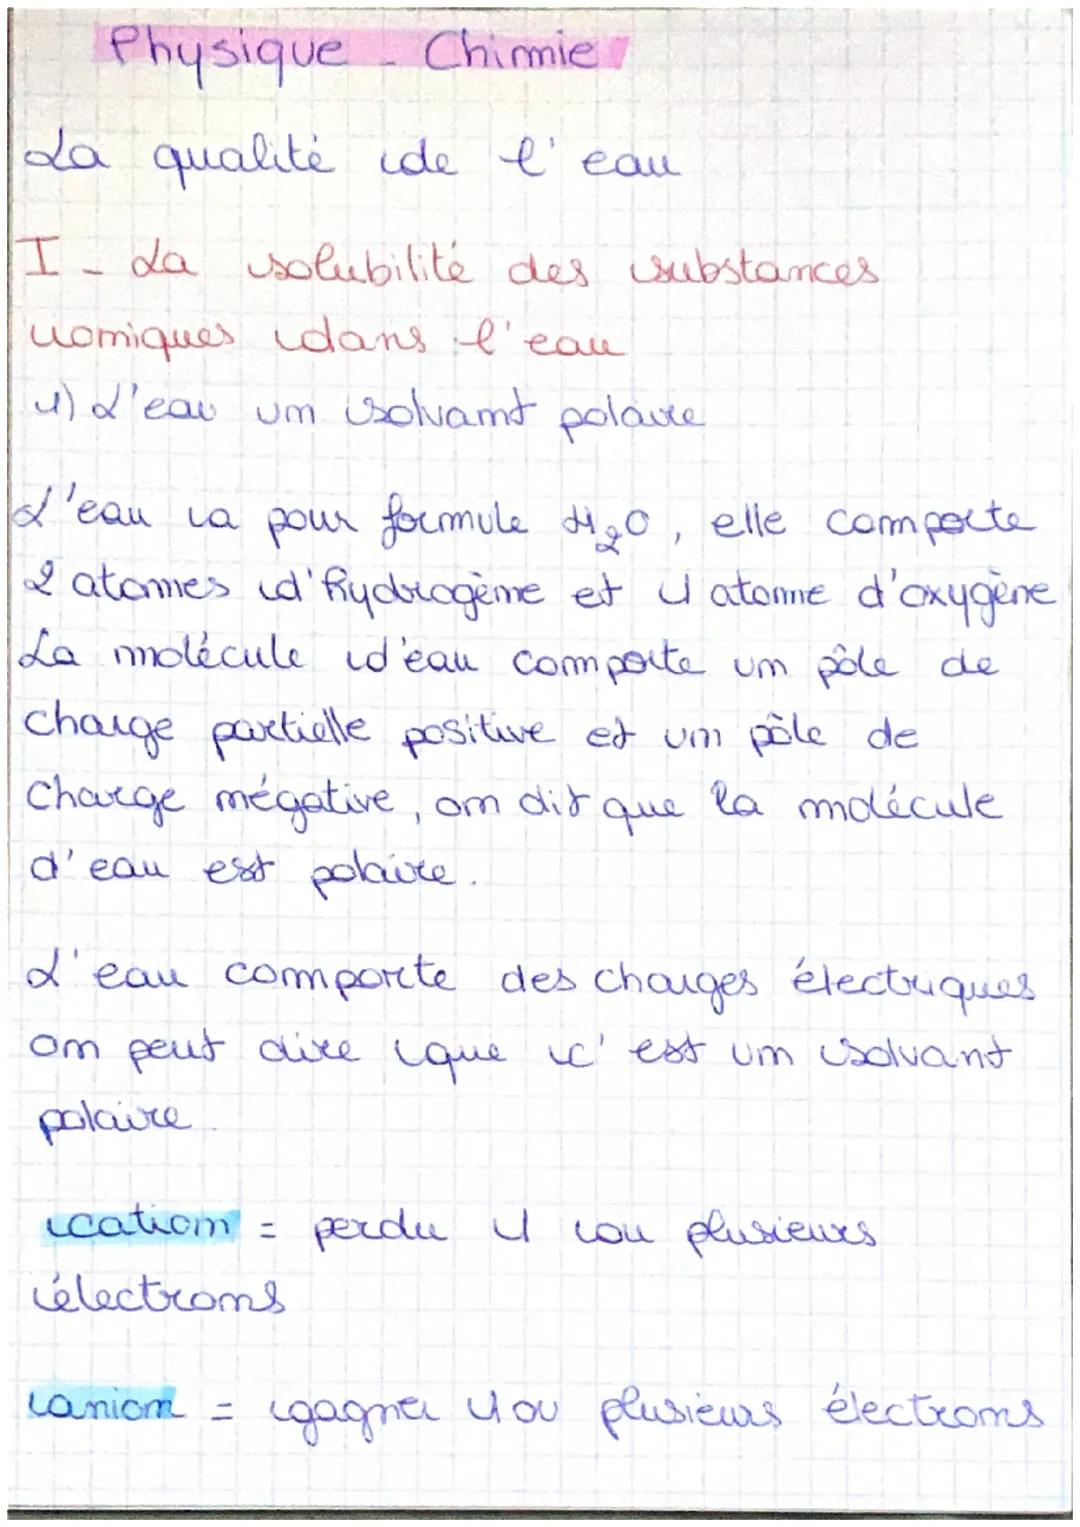 Physique - Chimie
La qualité de l'eau
I - La solubilité des substances
ioniques dans l'eau
1) L'eau un solvant polaire
L'eau a pour formule H₂O, elle comporte
2 atomes d'hydrogène et 1 atome d'oxygène
La molécule d'eau comporte un pôle de
charge partielle positive et un pôle de
charge négative, on dit que la molécule
d'eau est polaire.
L'eau comporte des charges électriques
on peut dire que c'est un solvant
polaire.
cation = perdu 1 ou plusieurs
électrons
anion = gagner 1 ou plusieurs électrons